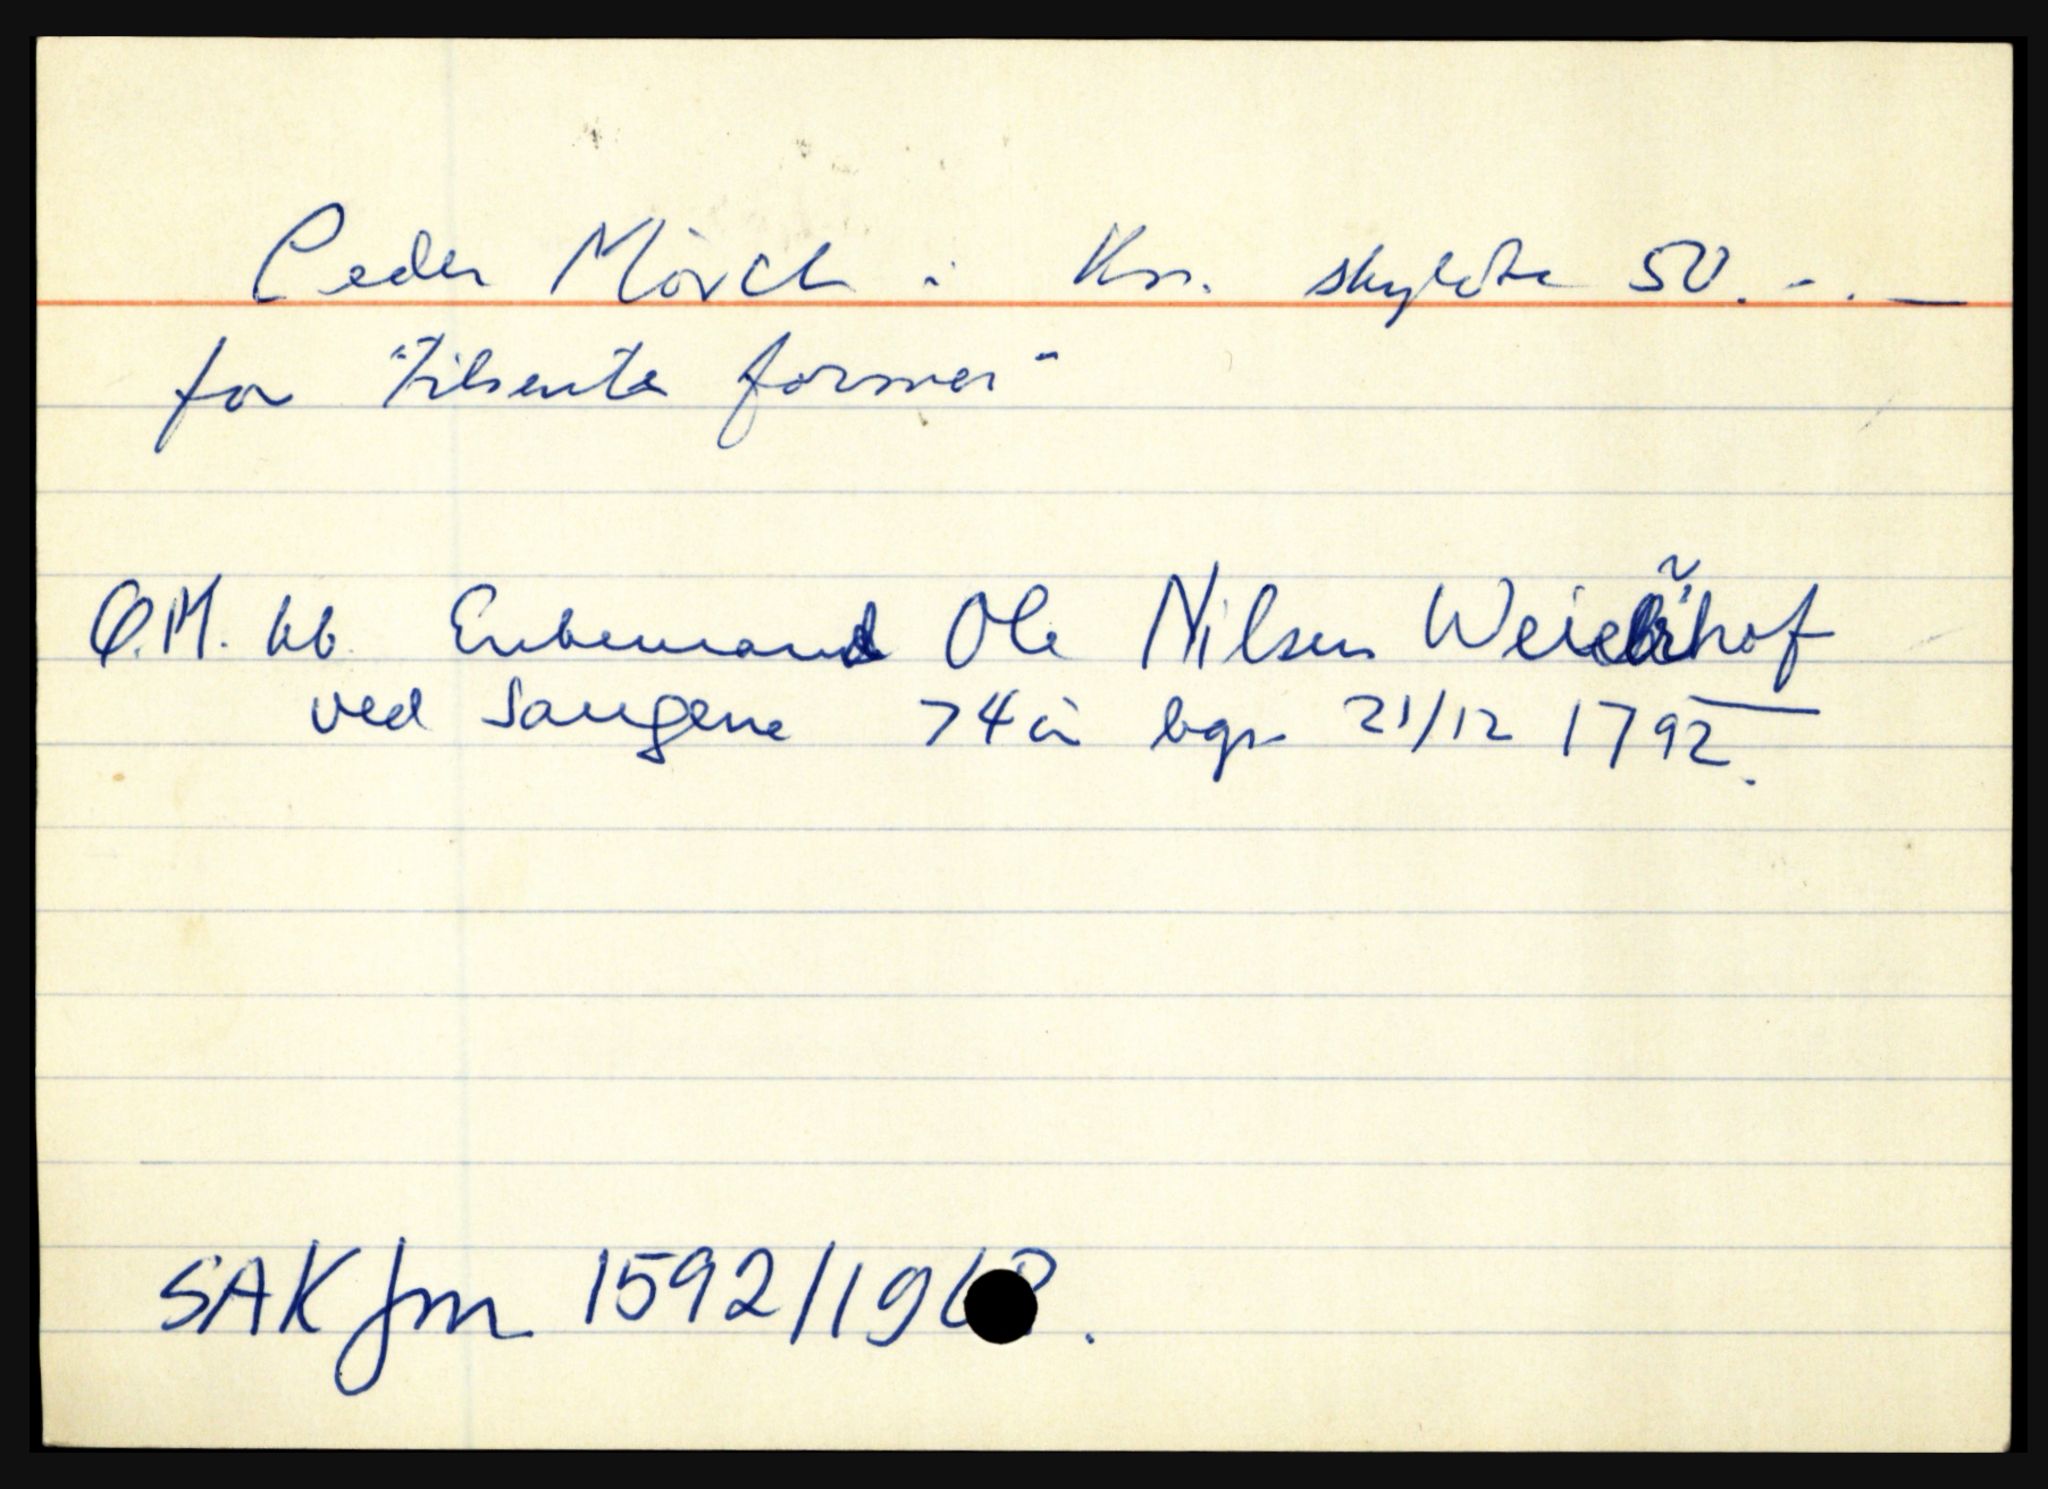 Peder Mörch i Krs. skyldte 50.-.-
for "tilsente former"
Ø.M. kb. Enkemand Ole Nilsen Weierhof
ved Saugene 74 år bgr. 21/12 1792.
SAK jnr 1592/196